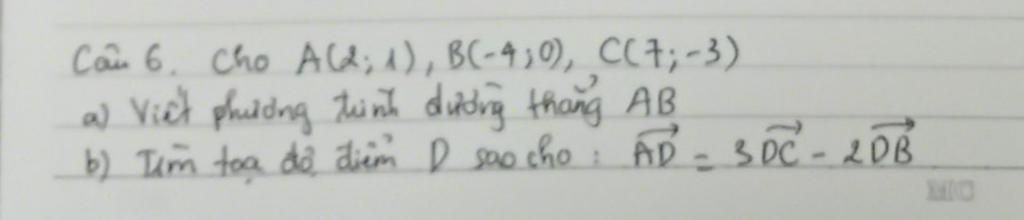 Câu 6. Cho A(2; 1), B(-4;0), C(7;-3)
a) Viết phương trình đường thẳng AB
b) Tìm toạ độ điểm D sao cho : \overrightarrow{AD} = 3\overrightarrow{DC} - 2\overrightarrow{DB}
MC